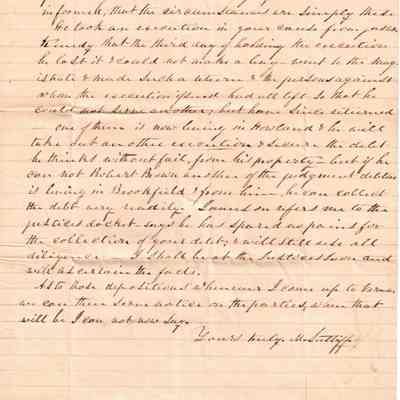 informed, that the circumstances are simply these
He took an execution in your cause from
that the third day of having the execution
he lost it & could not make a levy went to the mag
istrate & made such a return & the persons against
whom the execution issued had all left so that he
could not serve another, but have since returned
— one of them is now living in Howland & he will
take out another execution & secure the debt
he thinks without fail, from his property — but if he
can not Robert Brown another of the judgment debtors
is living in Brookfield & from him he can collect
the debt very readily. refers me to the
justices docket says he has spared no pains for
the collection of your debt, & will still use all
diligence. I shall be at the Justices soon and
will ascertain the facts.
As to those depositions whenever I come up to
we can then serve notice on the parties, when that
will be I can not now say.
Yours truly M Sutliff